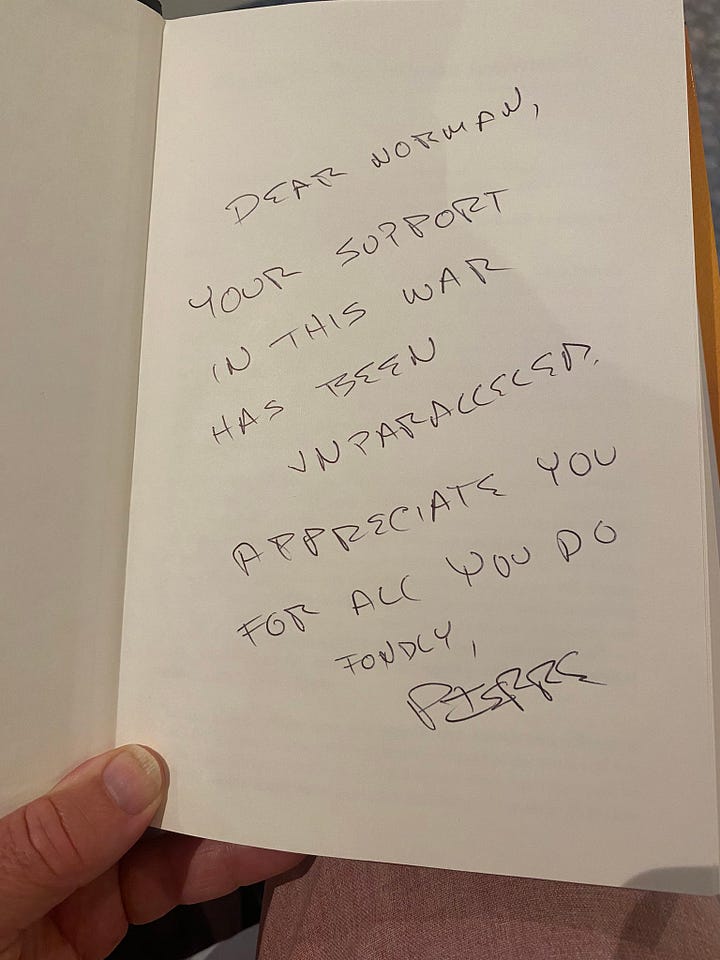 DEAR NORMAN,
YOUR SUPPORT
IN THIS WAR
HAS BEEN
UNPARALLELED.
APPRECIATE YOU
FOR ALL YOU DO
FONDLY,
PIERRE